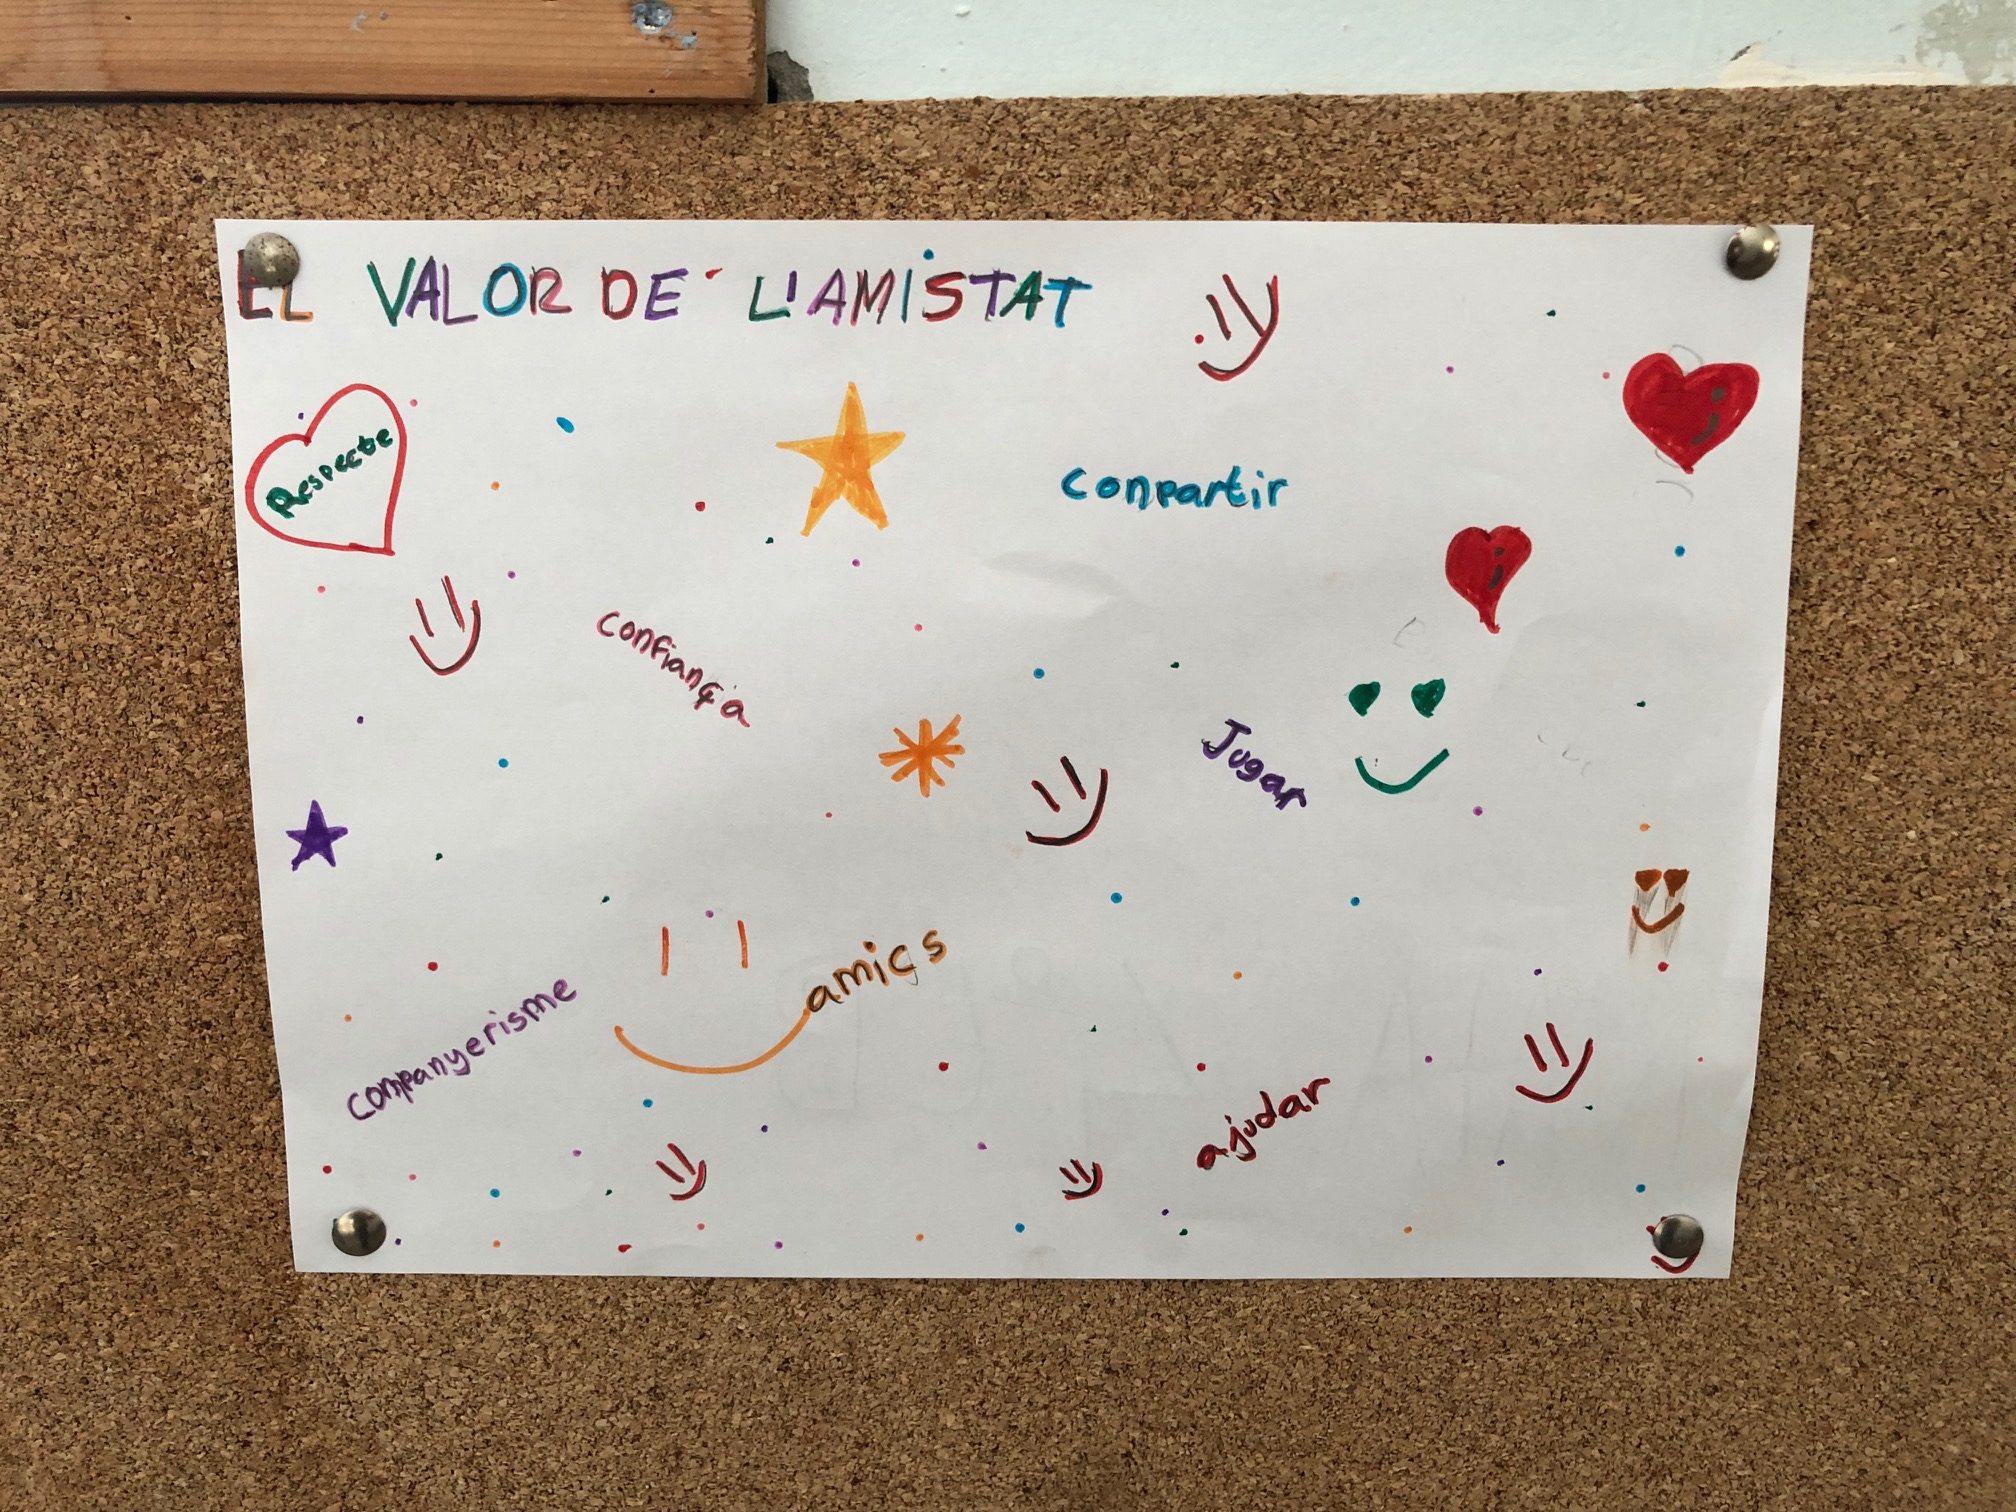 EL VALOR DE L'AMISTAT
Respecte
Conpartir
Confiança
Jugar
amics
companyerisme
ajudar